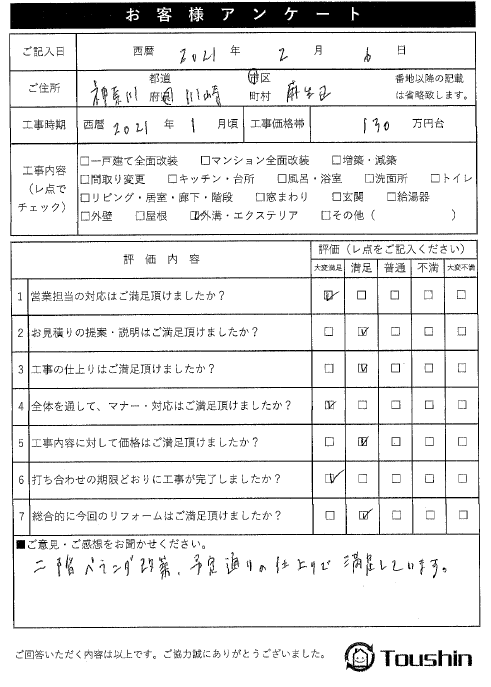 お客様アンケート
ご記入日 西暦 2021 年 2 月 6 日
ご住所 神奈川 都道府県 川崎 市区町村 麻生区 番地以降の記載は省略致します。
工事時期 西暦 2021 年 1 月頃 工事価格帯 130 万円台
工事内容（レ点でチェック）
□一戸建て全面改装 □マンション全面改装 □増築・減築
□間取り変更 □キッチン・台所 □風呂・浴室 □洗面所 □トイレ
□リビング・居室・廊下・階段 □窓まわり □玄関 □給湯器
□外壁 □屋根 ☑外溝・エクステリア □その他（ ）
評価内容 評価（レ点をご記入ください）
大変満足 満足 普通 不満 大変不満
1 営業担当の対応はご満足頂けましたか？ ☑ □ □ □ □
2 お見積りの提案・説明はご満足頂けましたか？ □ ☑ □ □ □
3 工事の仕上りはご満足頂けましたか？ □ ☑ □ □ □
4 全体を通して、マナー・対応はご満足頂けましたか？ ☑ □ □ □ □
5 工事内容に対して価格はご満足頂けましたか？ □ ☑ □ □ □
6 打ち合わせの期限どおりに工事が完了しましたか？ ☑ □ □ □ □
7 総合的に今回のリフォームはご満足頂けましたか？ □ ☑ □ □ □
■ご意見・ご感想をお聞かせください。
二階ベランダ改築、予定通りの仕上りで満足しています。
ご回答いただく内容は以上です。ご協力誠にありがとうございました。
Toushin